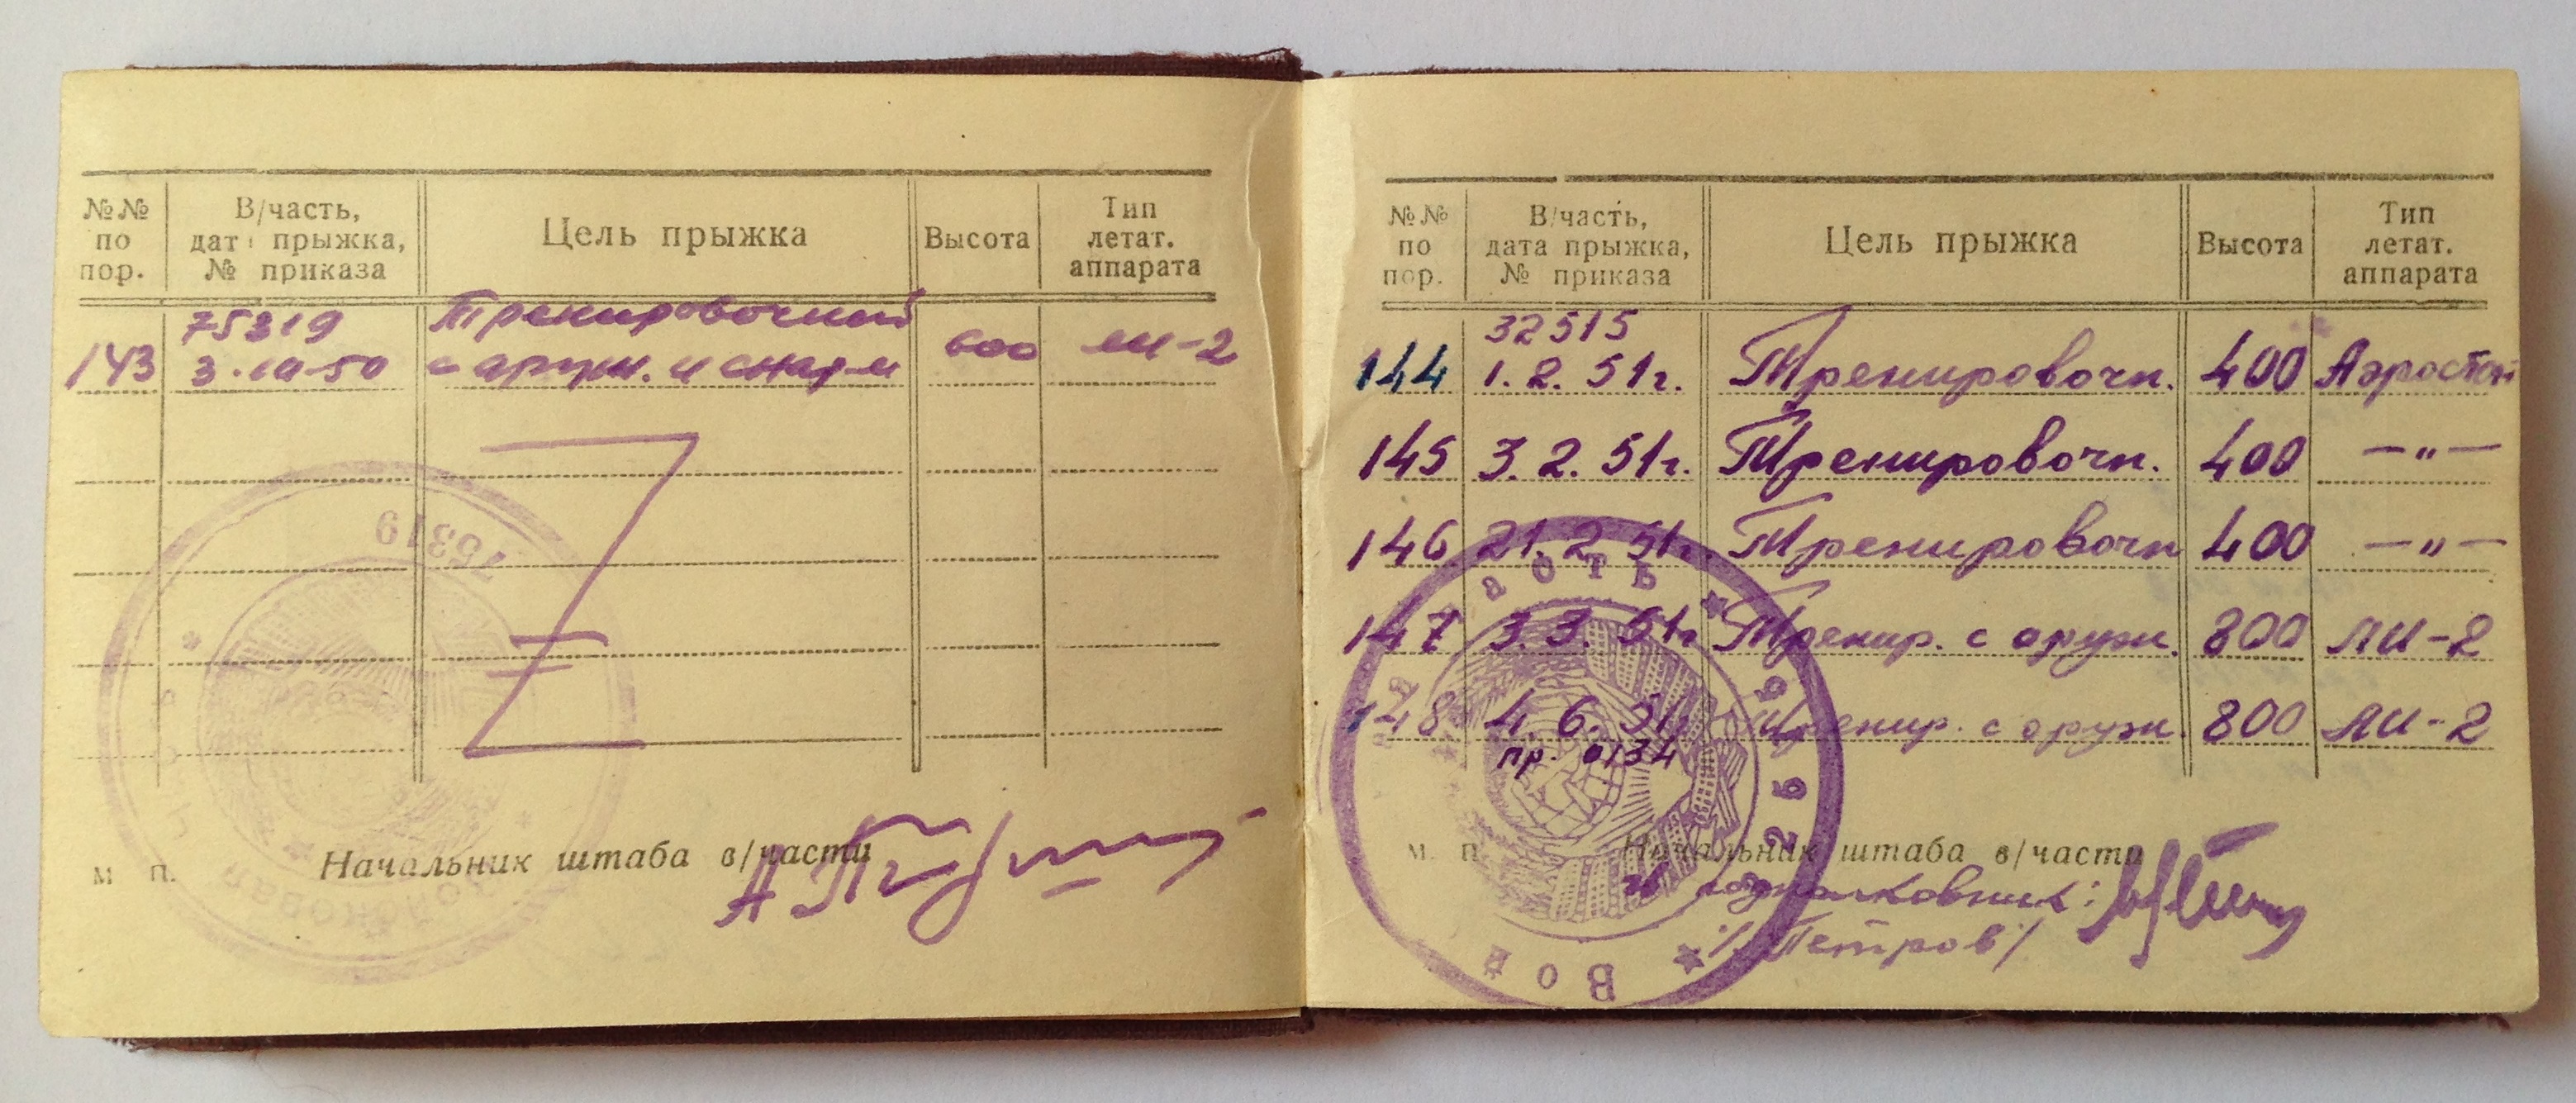 №№ по пор.
В/часть, дата прыжка, № приказа
Цель прыжка
Высота
Тип летат. аппарата
75319
Тренировочный
143 3.10.50 с оруж. и снар-м 600 ли-2
75319
м п.
Начальник штаба в/части
№№ по пор.
В/часть, дата прыжка, № приказа
Цель прыжка
Высота
Тип летат. аппарата
32515
144 1.2.51г. Тренировочн. 400 Аэростат
145 3.2.51г. Тренировочн. 400 —"—
146 21.2.51г. Тренировочн 400 —"—
147 3.3.51г Тренир. с оруж. 800 ЛИ-2
148 4.6.51г Тренир. с оруж. 800 ЛИ-2
пр. 0134
м. п
Начальник штаба в/части
подполковник:
/Петров/